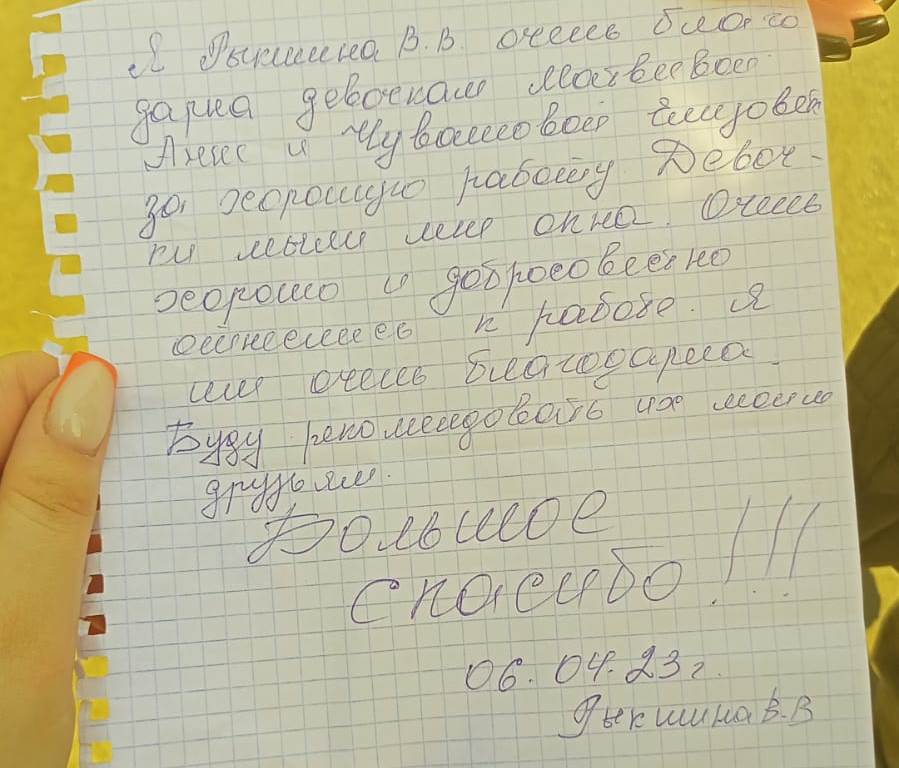 Я Рыкшина В.В. очень благо
дарна девочкам Матвеевой
Анне и Чувашовой Елизовет
за хорошую работу Девоч-
ки мыли мне окна. Очень
хорошо и добросовестно
отнеслись к работе. Я
им очень благодарна.
Буду рекомендовать их моим
друзьям.
Большое
спасибо!!!
06.04.23г.
Рыкшина В.В